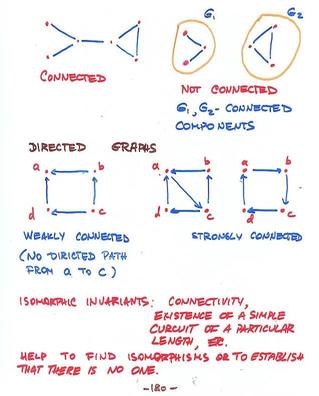 G₁ G₂
CONNECTED
NOT CONNECTED
G₁, G₂ - CONNECTED
COMPONENTS
DIRECTED GRAPHS
a b a b a b
d c d c d c
WEAKLY CONNECTED
STRONGLY CONNECTED
(NO DIRICTED PATH
FROM a TO c)
ISOMORPHIC INVARIANTS: CONNECTIVITY,
EXISTENCE OF A SIMPLE
CURCUIT OF A PARTICULAR
LENGTH, ETC.
HELP TO FIND ISOMORPHISMS OR TO ESTABLISH
THAT THERE IS NO ONE.
-180-